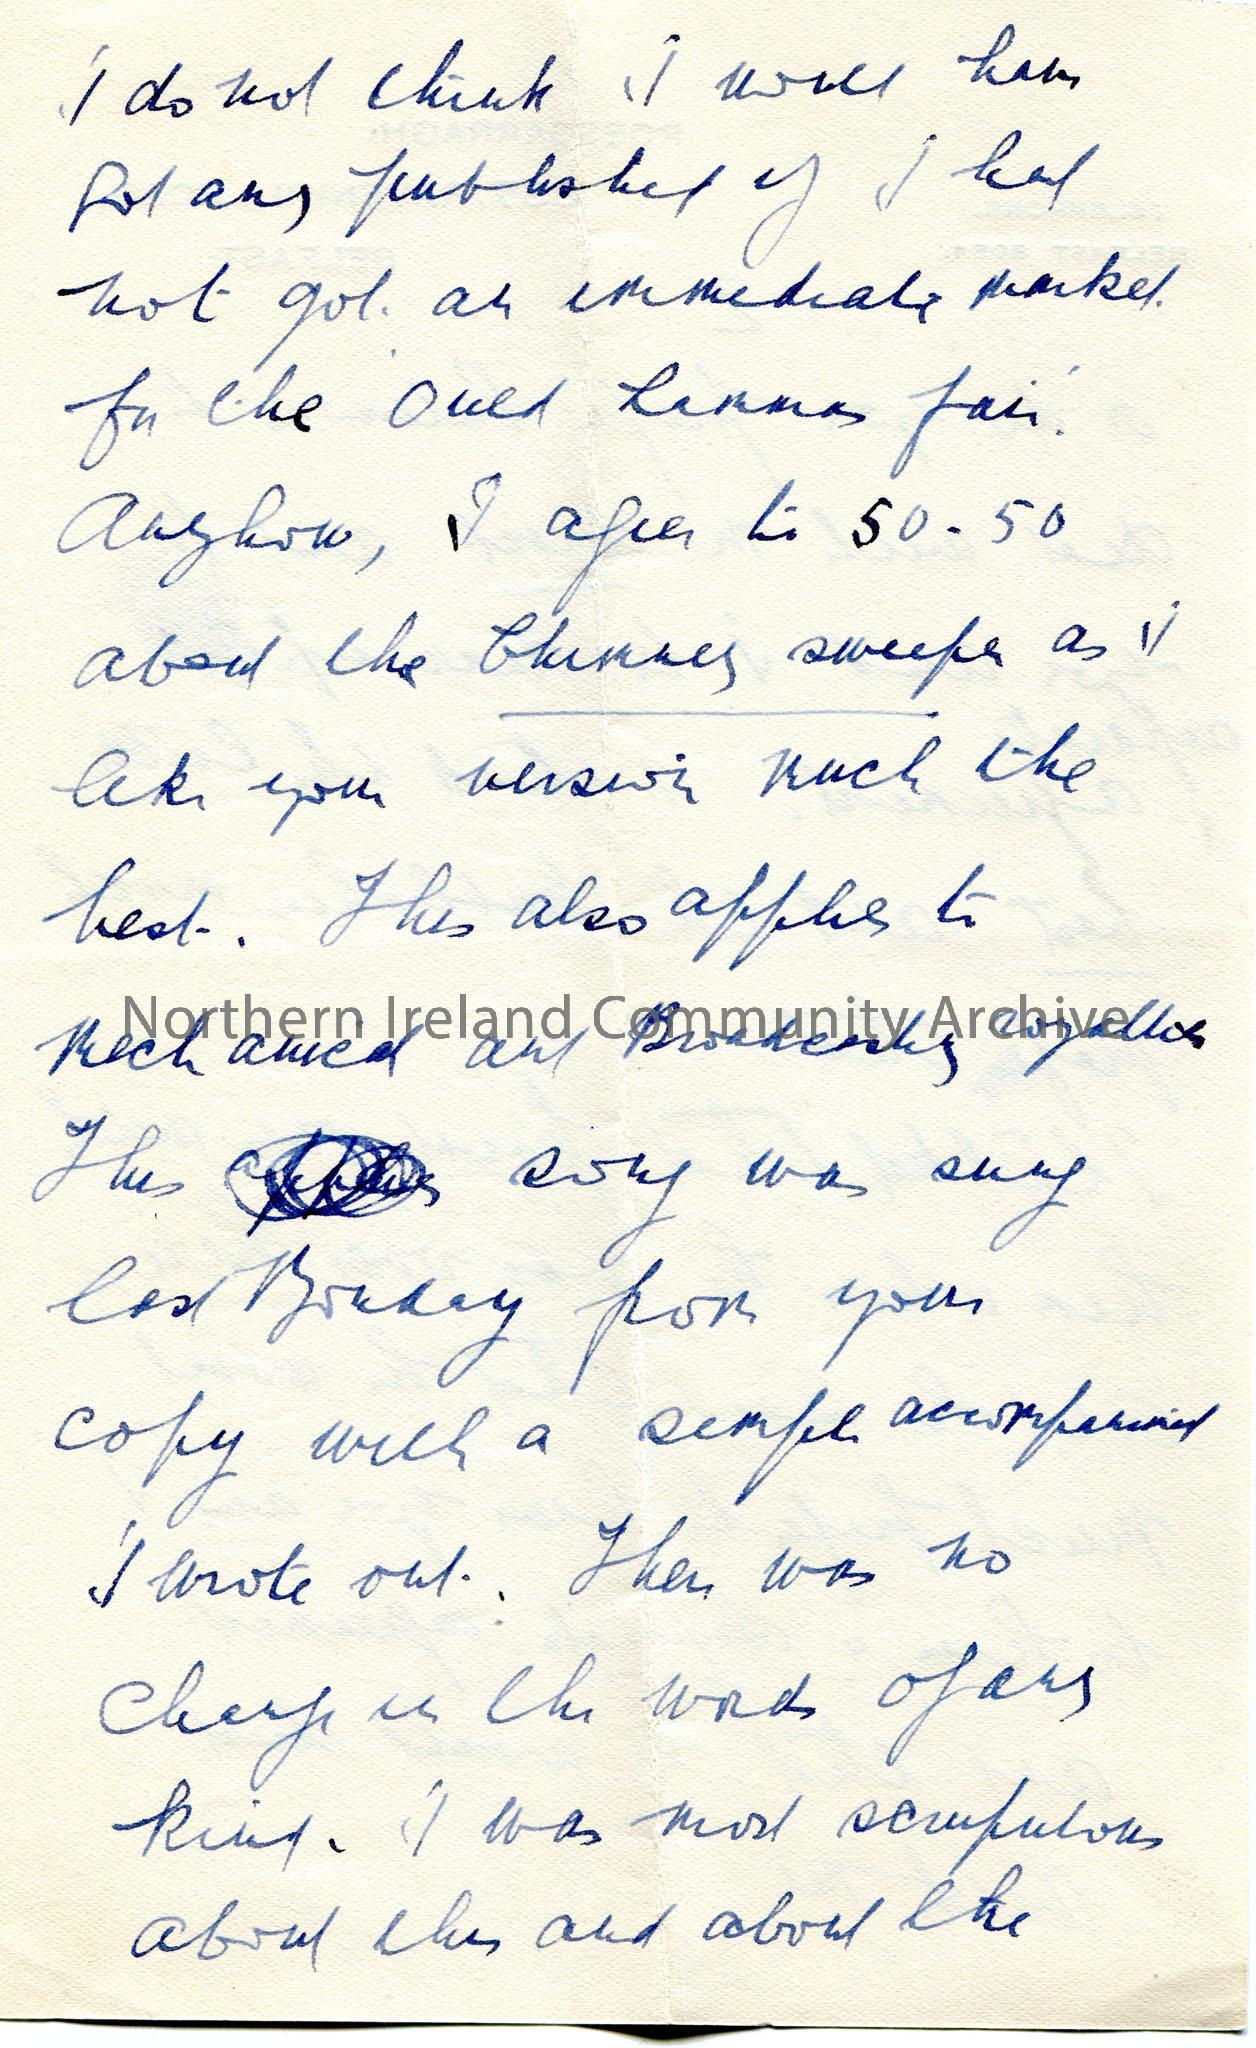 I do not think I would have
got any published if I had
not got an immediate market
for the 'Ould Lammas fair'.
Anyhow, I agree to 50-50
about the Chimney sweeper as I
like your version much the
best. This also applies to
Mechanical and Broadcasting royalties
This song was sung
last Monday from your
copy with a simple accompaniment
I wrote out. There was no
change in the words of any
kind. I was most scrupulous
about this and about the
Northern Ireland Community Archive